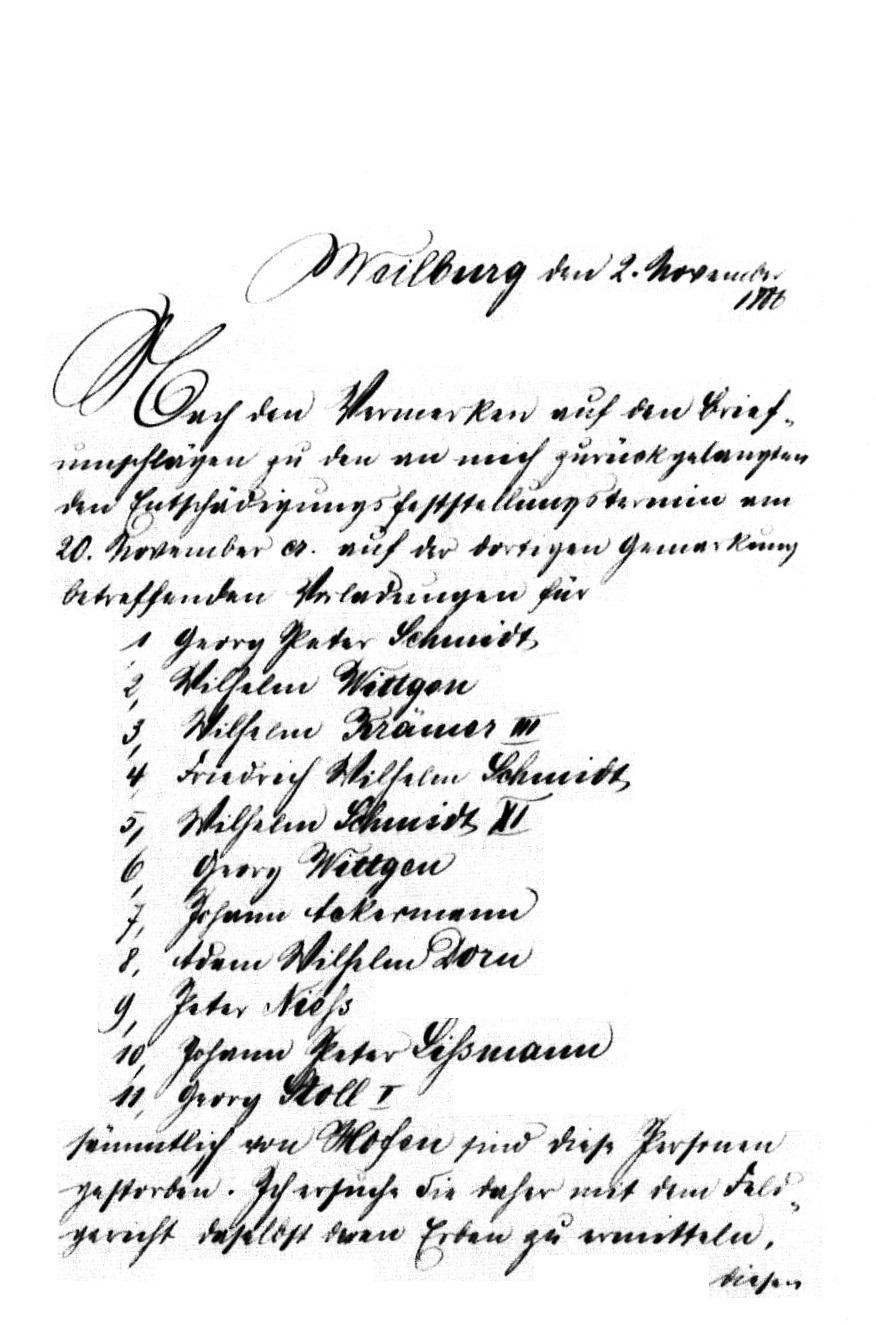 Weilburg den 2. November
Nach den Vermerken auf den Brief-
umschlägen zu den an mich zurückgelangten
den Entschädigungsfeststellungstermin am
20. November cr. auf der dortigen Gemarkung
betreffenden Vorladungen für
1 Georg Peter Schmidt
2, Wilhelm Wittgen
3, Wilhelm Krämer III
4 Friedrich Wilhelm Schmidt
5, Wilhelm Schmidt XI
6, Georg Wittgen
7, Johann Ackermann
8, Adam Wilhelm Dorn
9, Peter Niess
10, Johann Peter Lissmann
11, Georg Stoll I
sämmtlich von sind diese Personen
gestorben. Ich ersuche Sie daher mit dem Feld-
gericht daselbst deren Erben zu ermitteln,
diesen